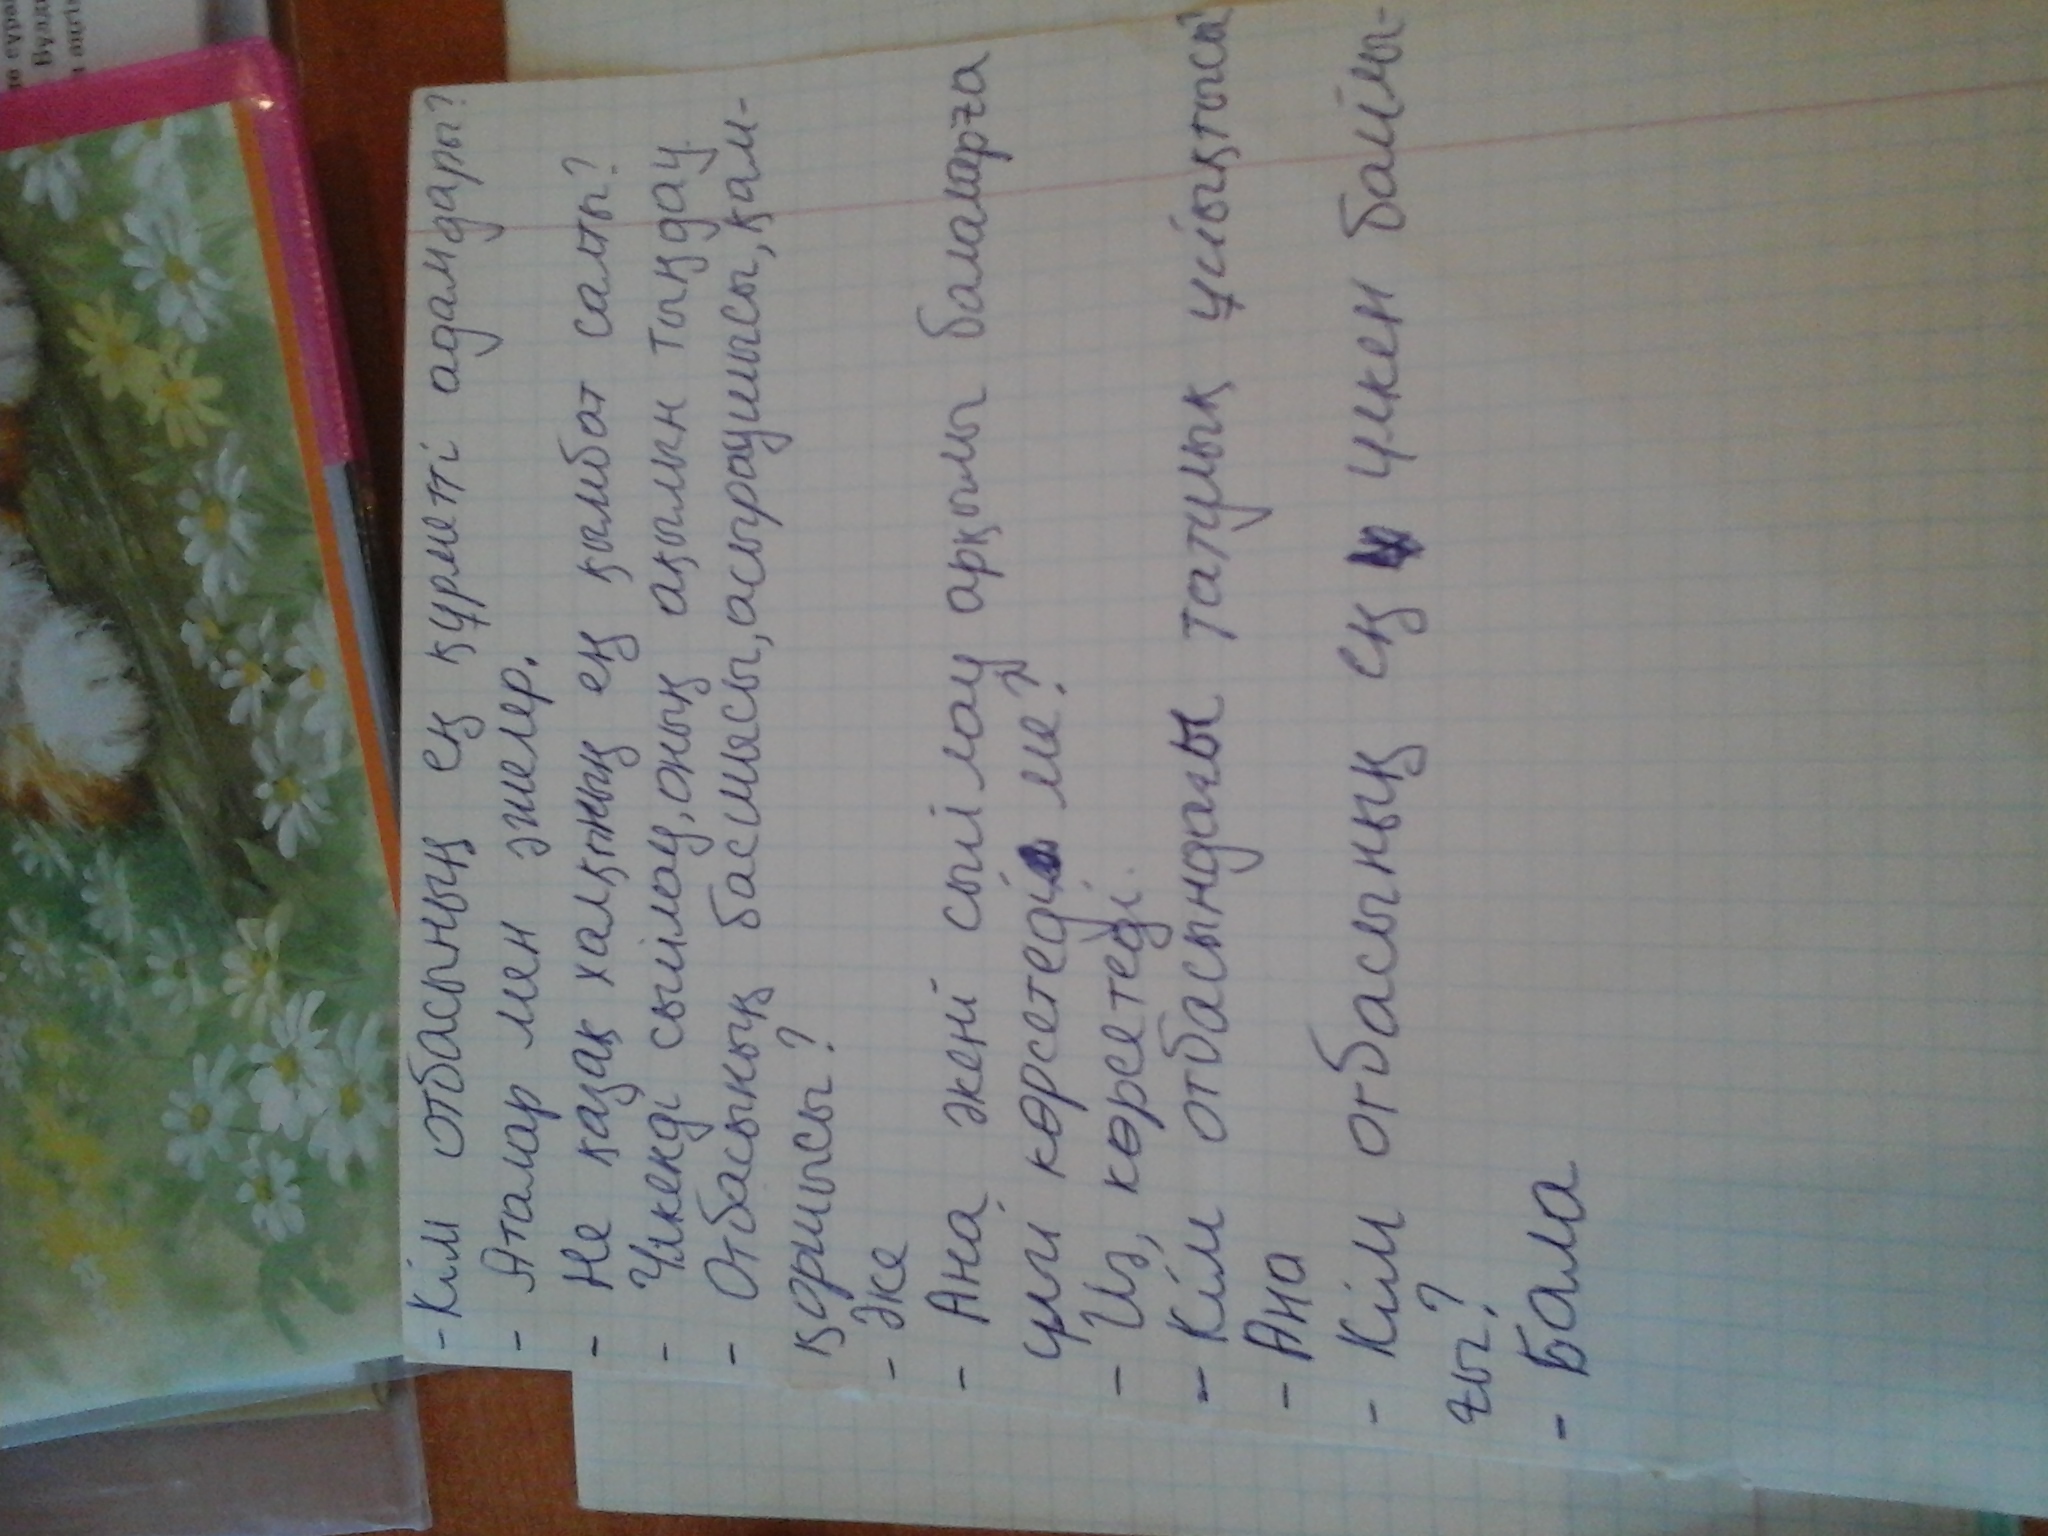 - Кім отбасының ең құрметті адамдары?
- Аталар мен әжелер.
- Не қазақ халқының ең қымбат салты?
- Үлкенді сыйлау, оның ақылын тыңдау
- Отбасының басшысы, асыраушысы, қам-
қоршысы?
- Әке
- Ана әкені сыйлау арқылы балаларға
үлгі көрсетеді ме?
- Иә, көрсетеді.
- Кім отбасындағы татулық ұйытқысы
- Ана
- Кім отбасының ең үлкен байлы-
ғы?
- Бала